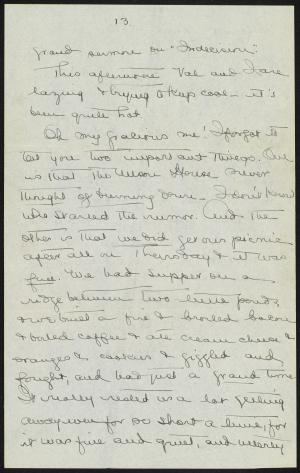 13
grand sermon on "Indecision".
This afternoon Val and I are
lazing & trying to keep cool - it's
been quite hot.
Oh my gracious me! I forgot to
tell you two important things. One
is that The Moon House never
thought of burning down - I don't know
who started the rumor. And the
other is that we did get our picnic
after all on Thursday & it was
fine. We had supper on a
ridge between two little ponds
& we built a fire & broiled bacon
& boiled coffee & ate cream cheese &
oranges & cookies & giggled and
fought, and had just a grand time
It really rested us a lot getting
away even for so short a time, for
it was fine and quiet, and